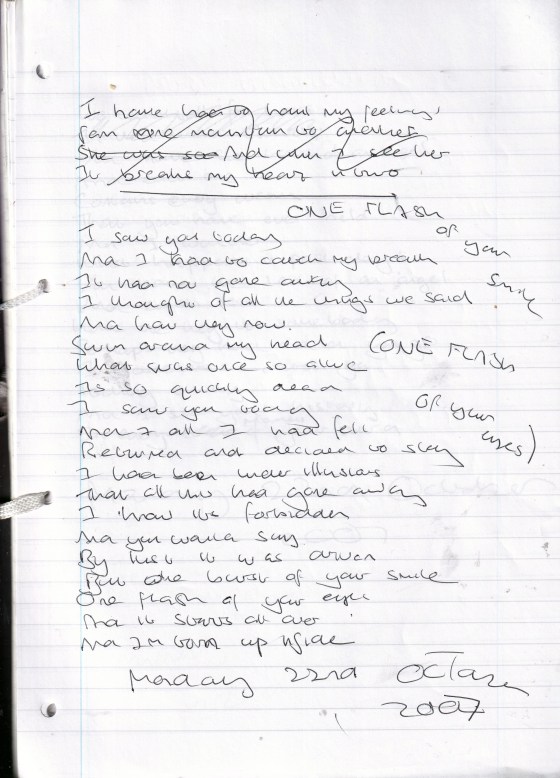 I have had to haul my feelings
from one mountain to another
She was so And when I see her
It breaks my heart in two
ONE FLASH
OF your
Smile
I saw you today
And I had to catch my breath
It had not gone away
I thought of all the things we said
And how they now
Swim around my head
What was once so alive
Is so quickly dead
(ONE FLASH
OF your
eyes)
I saw you today
And all I had felt
Returned and decided to stay
I had been under illusions
That all this had gone away
I know its forbidden
And you wanna say
By this it was
But one burst of your smile
One flash of your eyes
And it starts all over
And I'm torn up inside
Monday 22nd October
2007